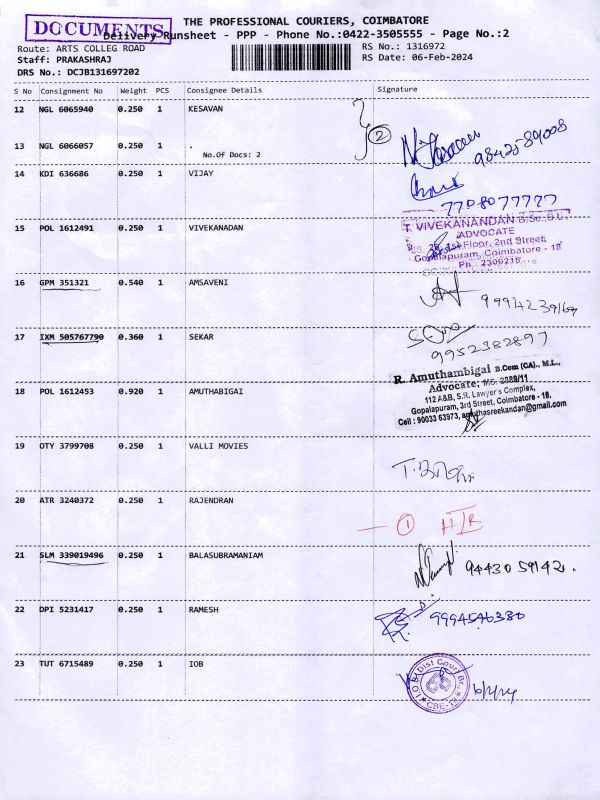 THE PROFESSIONAL COURIERS, COIMBATORE
DOCUMENTS
Delivery Runsheet - PPP - Phone No.:0422-3505555 - Page No.:2
Route: ARTS COLLEG ROAD
RS No.: 1316972
Staff: PRAKASHRAJ
RS Date: 06-Feb-2024
DRS No.: DCJB131697202
S No Consignment No Weight PCS Consignee Details Signature
12 NGL 6065940 0.250 1 KESAVAN
2
13 NGL 6066057 0.250 1 .
No.Of Docs: 2
9842589008
14 KDI 636686 0.250 1 VIJAY
7708077777
15 POL 1612491 0.250 1 VIVEKANADAN
T. VIVEKANANDAN B.Sc., B.L.
ADVOCATE
Floor, 2nd Street,
Gopalapuram, Coimbatore - 18
Ph: 2309218
16 GPM 351321 0.540 1 AMSAVENI
17 IXM 505767790 0.360 1 SEKAR
9952382897
18 POL 1612453 0.920 1 AMUTHABIGAI
R. Amuthambigai B.Com (CA)., M.L.,
Advocate, MS. 2889/11
112 A&B, S.R. Lawyer's Complex,
Gopalapuram, 3rd Street, Coimbatore - 18.
Cell : 90033 63973, amuthasreekandan@gmail.com
19 OTY 3799708 0.250 1 VALLI MOVIES
20 ATR 3240372 0.250 1 RAJENDRAN
1
21 SLM 339019496 0.250 1 BALASUBRAMANIAM
9443059142.
22 DPI 5231417 0.250 1 RAMESH
9994546380
23 TUT 6715489 0.250 1 IOB
I.O.B. Dist Court Br.
CBE-18
6/2/24